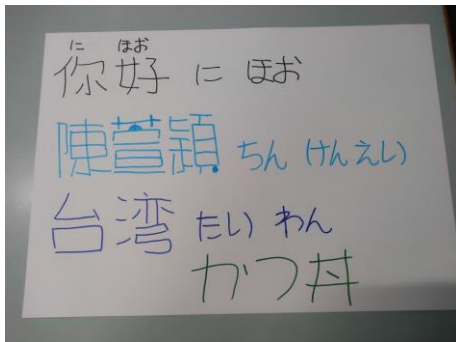 に ほお
你好 に ほお
陳萱穎 ちん けんえい
台湾 たい わん
かつ丼